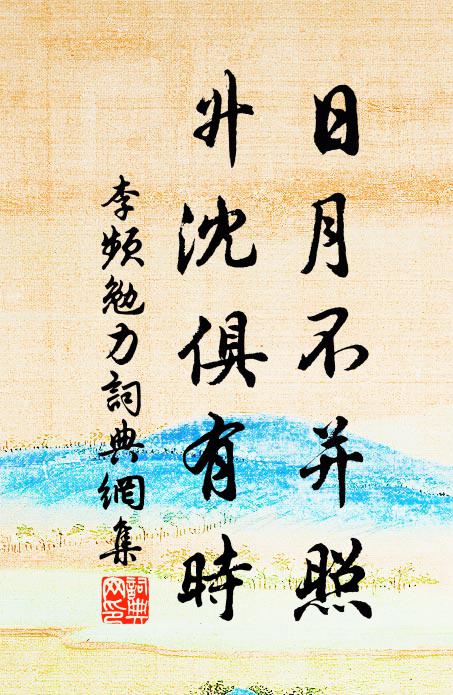 日月不并照
升沈俱有時
李頻勉力詞典網集
詞典